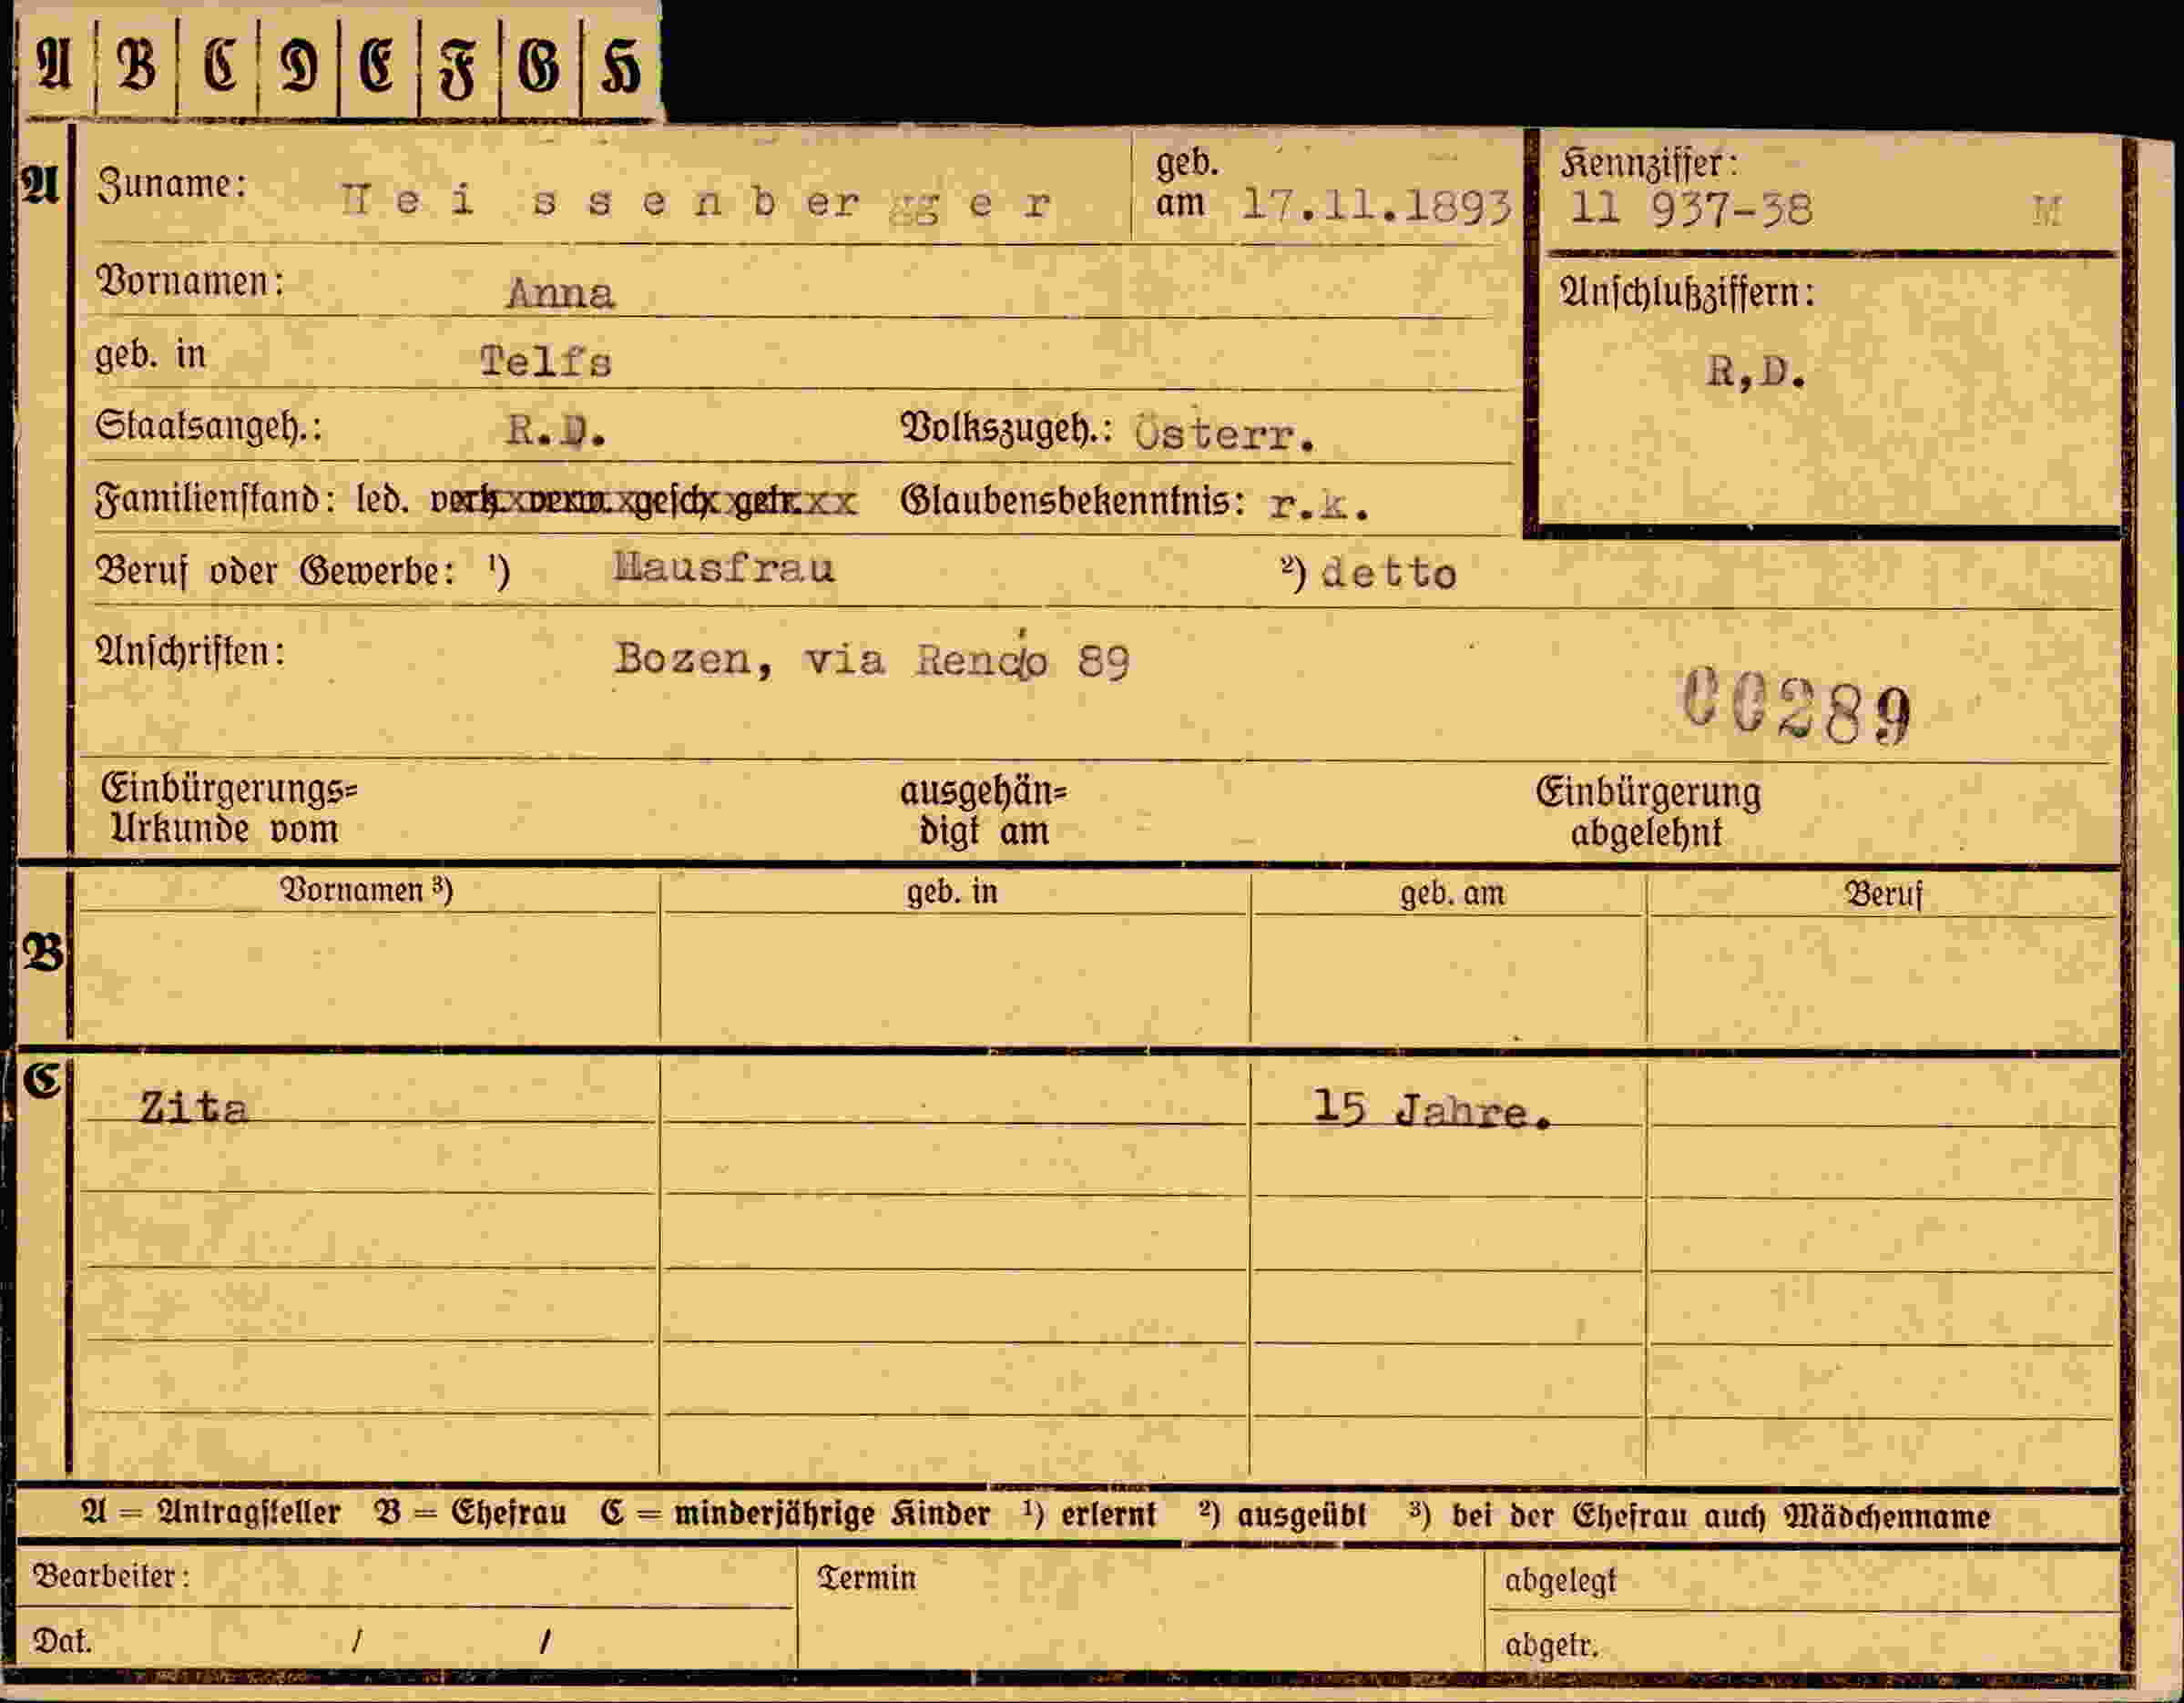 A B C D E F G H
A Zuname: Heissenbergger geb. am 17.11.1893 Kennziffer: 11 937-38 M
Vornamen: Anna Anschlußziffern:
geb. in Telfs R,D.
Staatsangeh.: R.D. Volkszugeh.: Österr.
Familienstand: led. verh. verw. gesch. getr. Glaubensbekenntnis: r.k.
Beruf oder Gewerbe: ¹) Hausfrau ²) detto
Anschriften: Bozen, via 89
00289
Einbürgerungs= ausgehän= Einbürgerung
Urkunde vom digt am abgelehnt
Vornamen ³) geb. in geb. am Beruf
B
C Zita 15 Jahre.
A = Antragsteller B = Ehefrau C = minderjährige Kinder ¹) erlernt ²) ausgeübt ³) bei der Ehefrau auch Mädchenname
Bearbeiter: Termin abgelegt
Dat. / / abgetr.